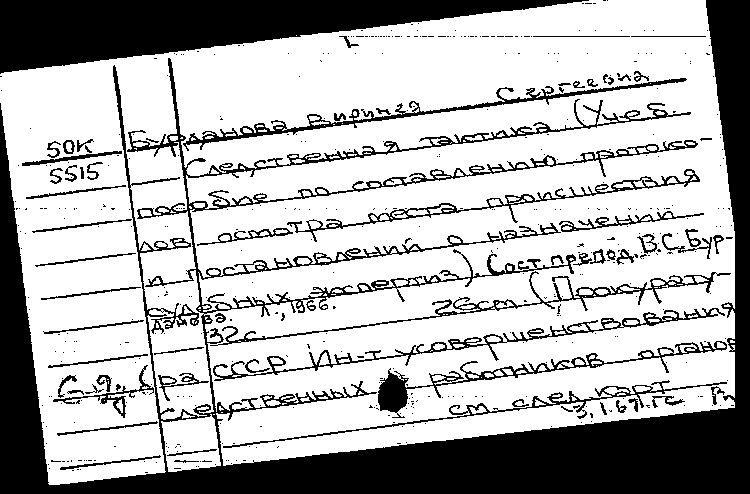 Бурданова, Виринея Сергеевна
50К Следственная тактика (Учеб.
5515 пособие по составлению протоко-
лов осмотра места происшествия
и постановлений о назначении
судебных экспертиз). Сост. препод. В.С. Бур-
данова. Л., 1966.
32 с. 26 cm. (Прокурату-
ра СССР Ин-т усовершенствования
следственных работников органов
см. след. карт